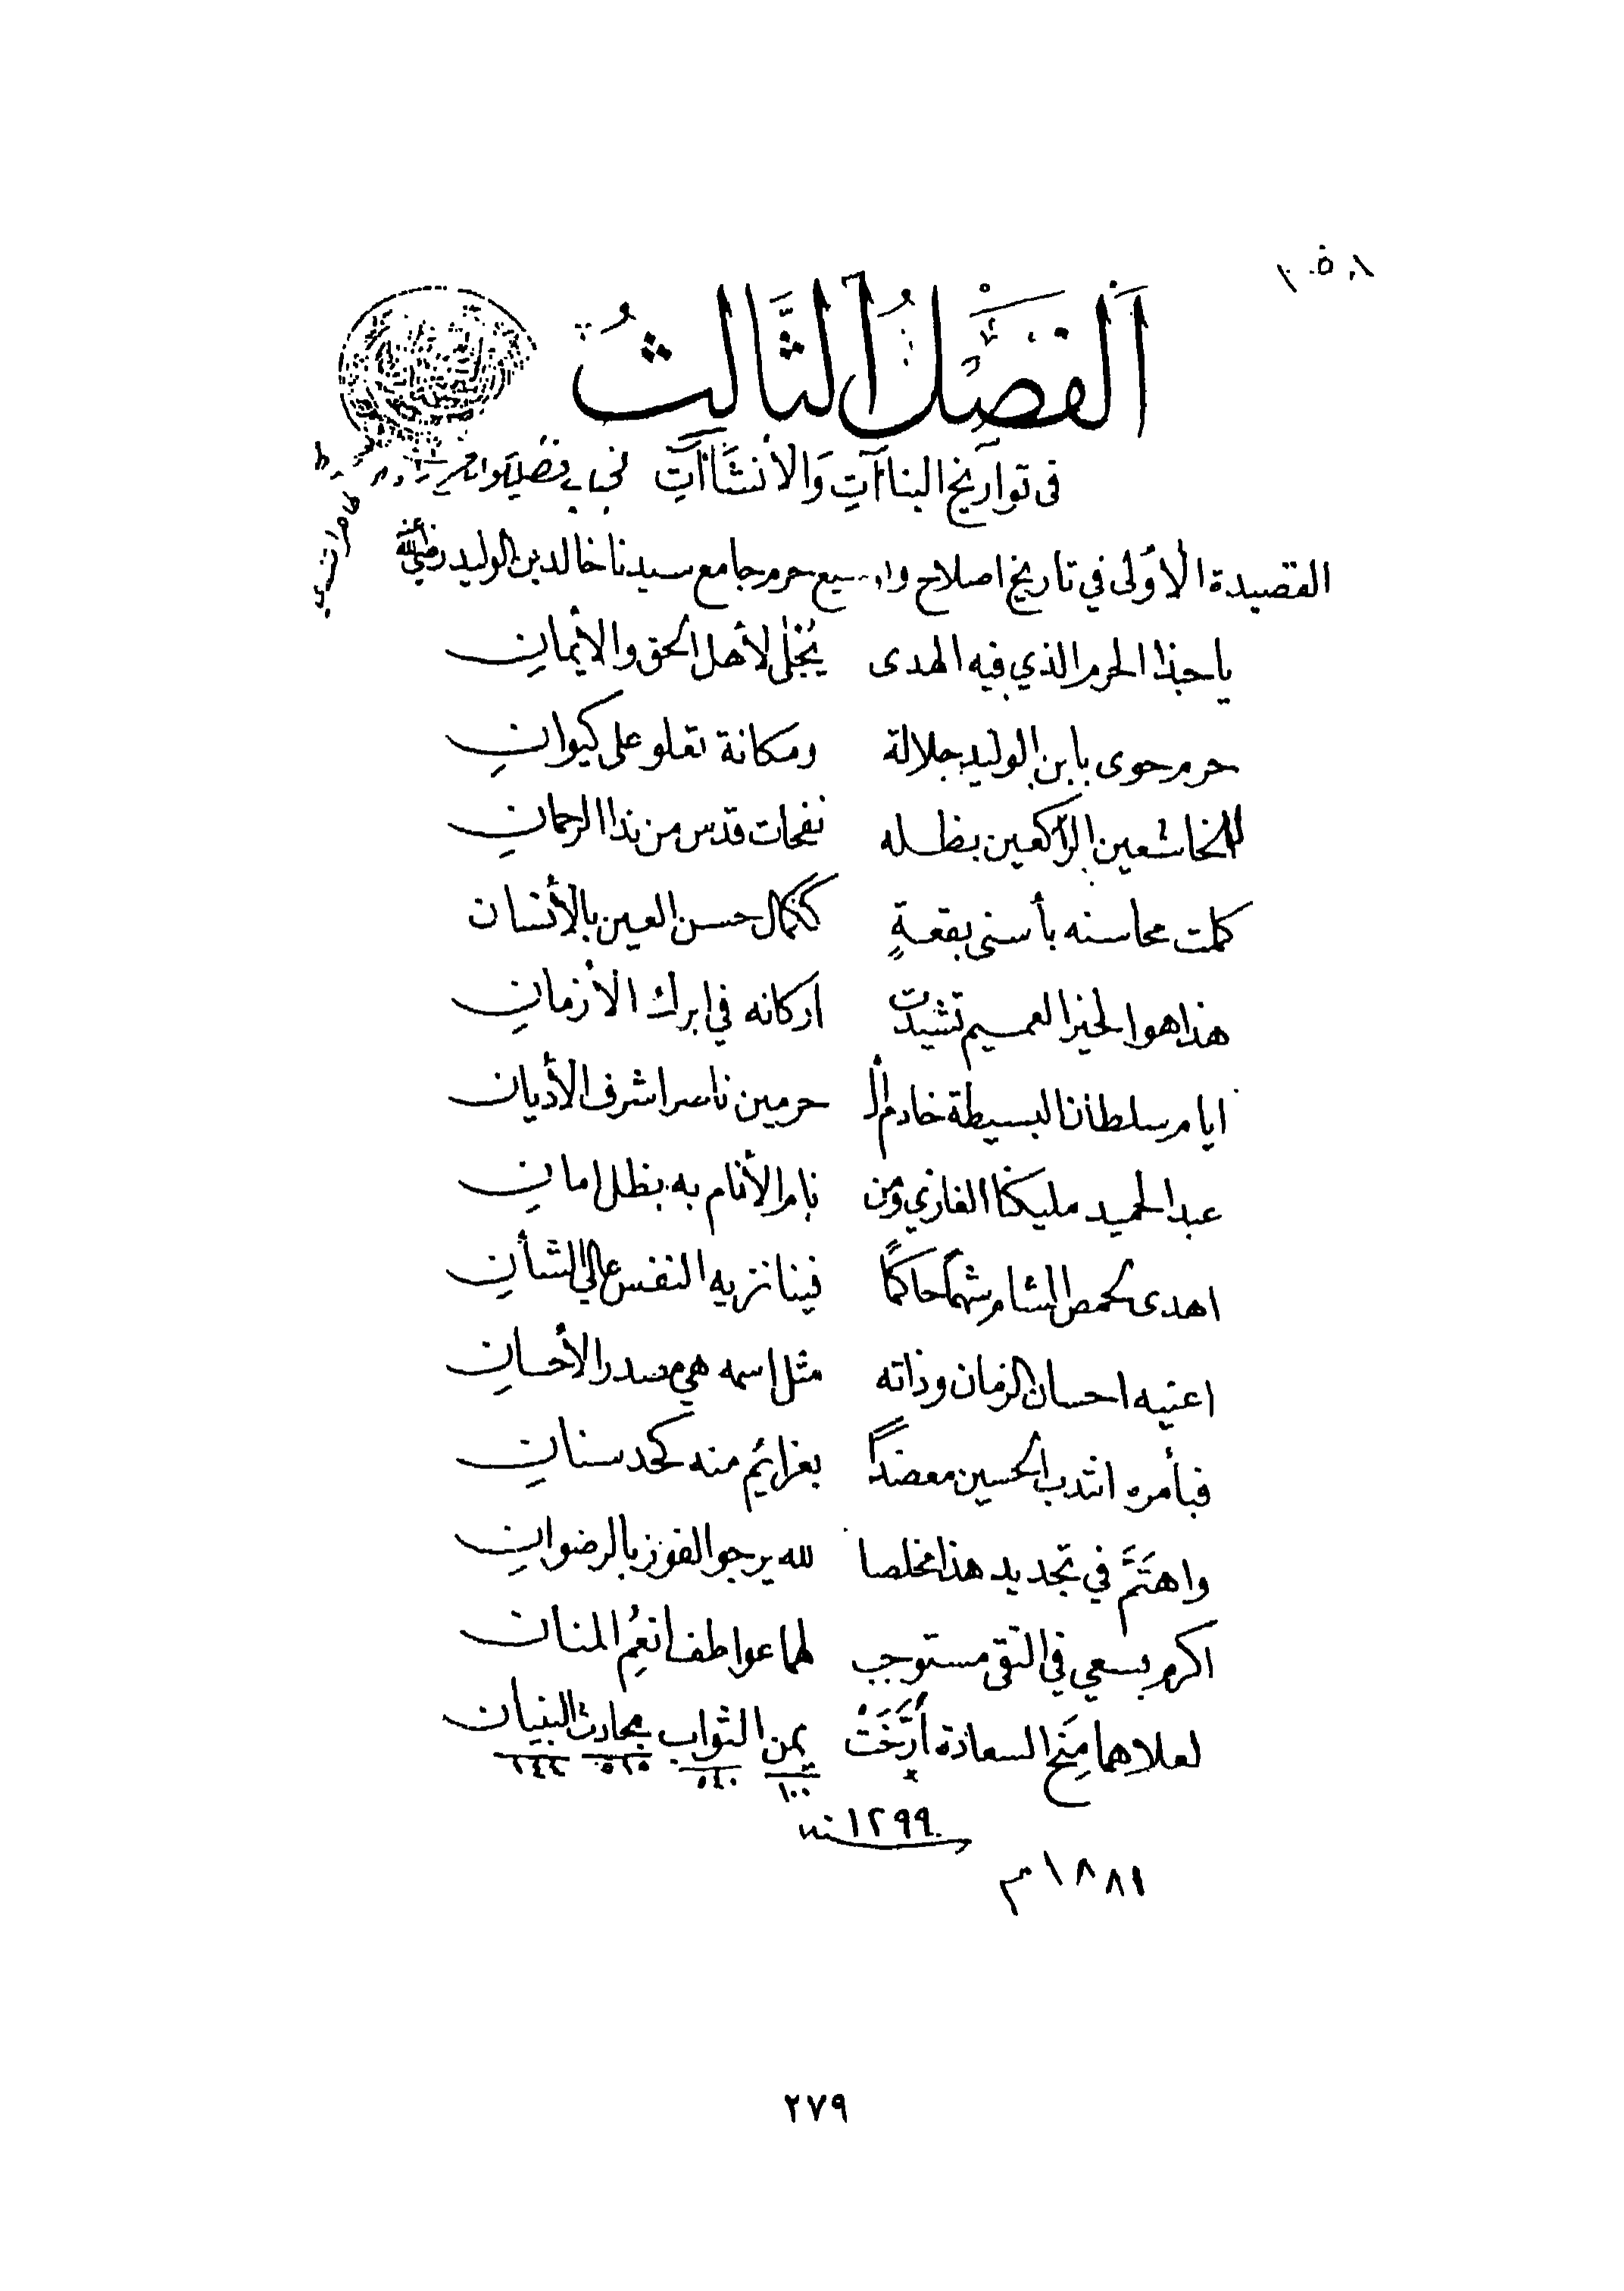 الفَصْلُ الثَّالِثُ
فى تواريخ البناآتِ وَالأنشَاآتِ
القصيدة الأولى في تاريخ اصلاح حرم جامع سيدنا خالد بن الوليد رضي الله عنه
يا حبذا الحرم الذي فيه الهدى يُجْلى لأهل الحق والأيمانِ
حرم حوى بابن الوليد جلالة ومكانة تعلو على كيوانِ
للخاشعين الراكعين بظله نفحات قدس من ندا الرحمانِ
كملت محاسنه بأسنى بقعةٍ ككمال حسن العين بالأنسان
هذا هو الخير العميم تشيدت اركانه في ابرك الأزمانِ
ايام سلطان البسيطة خادم الـ حرمين ناصر اشرف الأديان
عبد الحميد مليكنا الغازي ومن نام الأنام به بظل امانِ
اهدى لحمص الشام شهمًا حاكمًا فينا نزيه النفس عالي الشأنِ
اعنيه احسان الزمان وذاته مثل اسمه هي مصدر الأحسانِ
فبأمره انتدب الحسين معضداً بعزائم منه كحد سنانِ
واهتَمَّ في تجديد هذا مخلصا لله يرجو الفوز بالرضوانِ
اكرم بسعي في التقى مستوجب لهما عواطف انعُمِ المنان
لعلاهما مِنَح السعادة أرَّخَتْ يمن الثواب بحادث البنيان
١٠٠ ٥٤٠ ٥١٥ ١٤٤
١٢٩٩
١٨٨١ م
٢٧٩